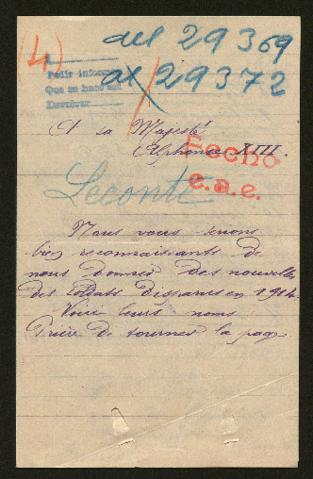 (4)
del 29369
al 29372
Pedir informes
Que se hace así
Devolver
A sa Majesté
Alphonse XIII.
Hecho
e.a.e.
Leconte
Nous vous serions
bien reconnaissants de
nous donner des nouvelles
des soldats disparus en 1914.
Voici leurs noms
Prière de tourner la page